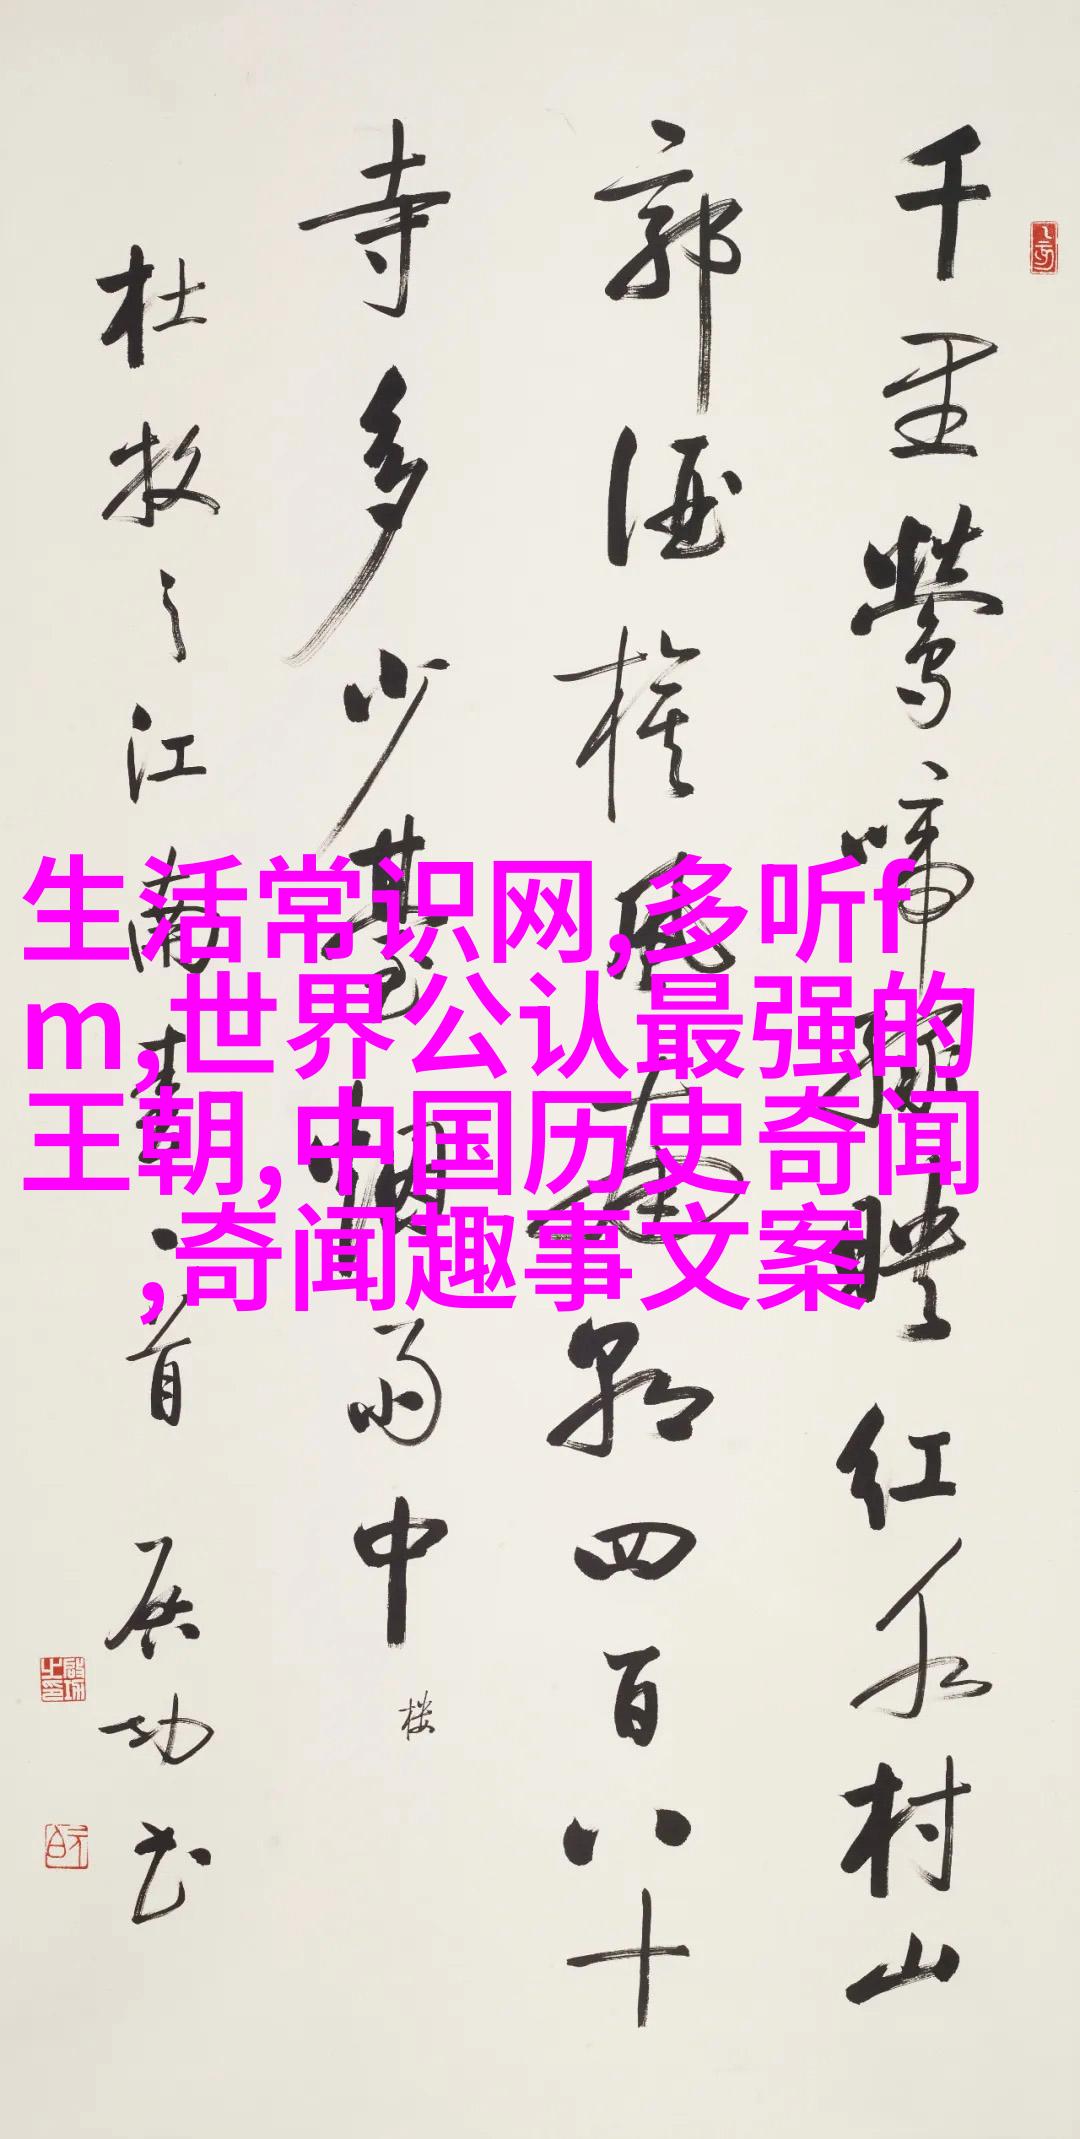 千里莺啼绿映红水村山
郭酒旗风南朝四百八十
寺多少臺烟雨中
楼
杜牧之江南春一首 启功书
生活常识网,多听f
m,世界公认最强的
王朝,中国历史奇闻
,奇闻趣事文案